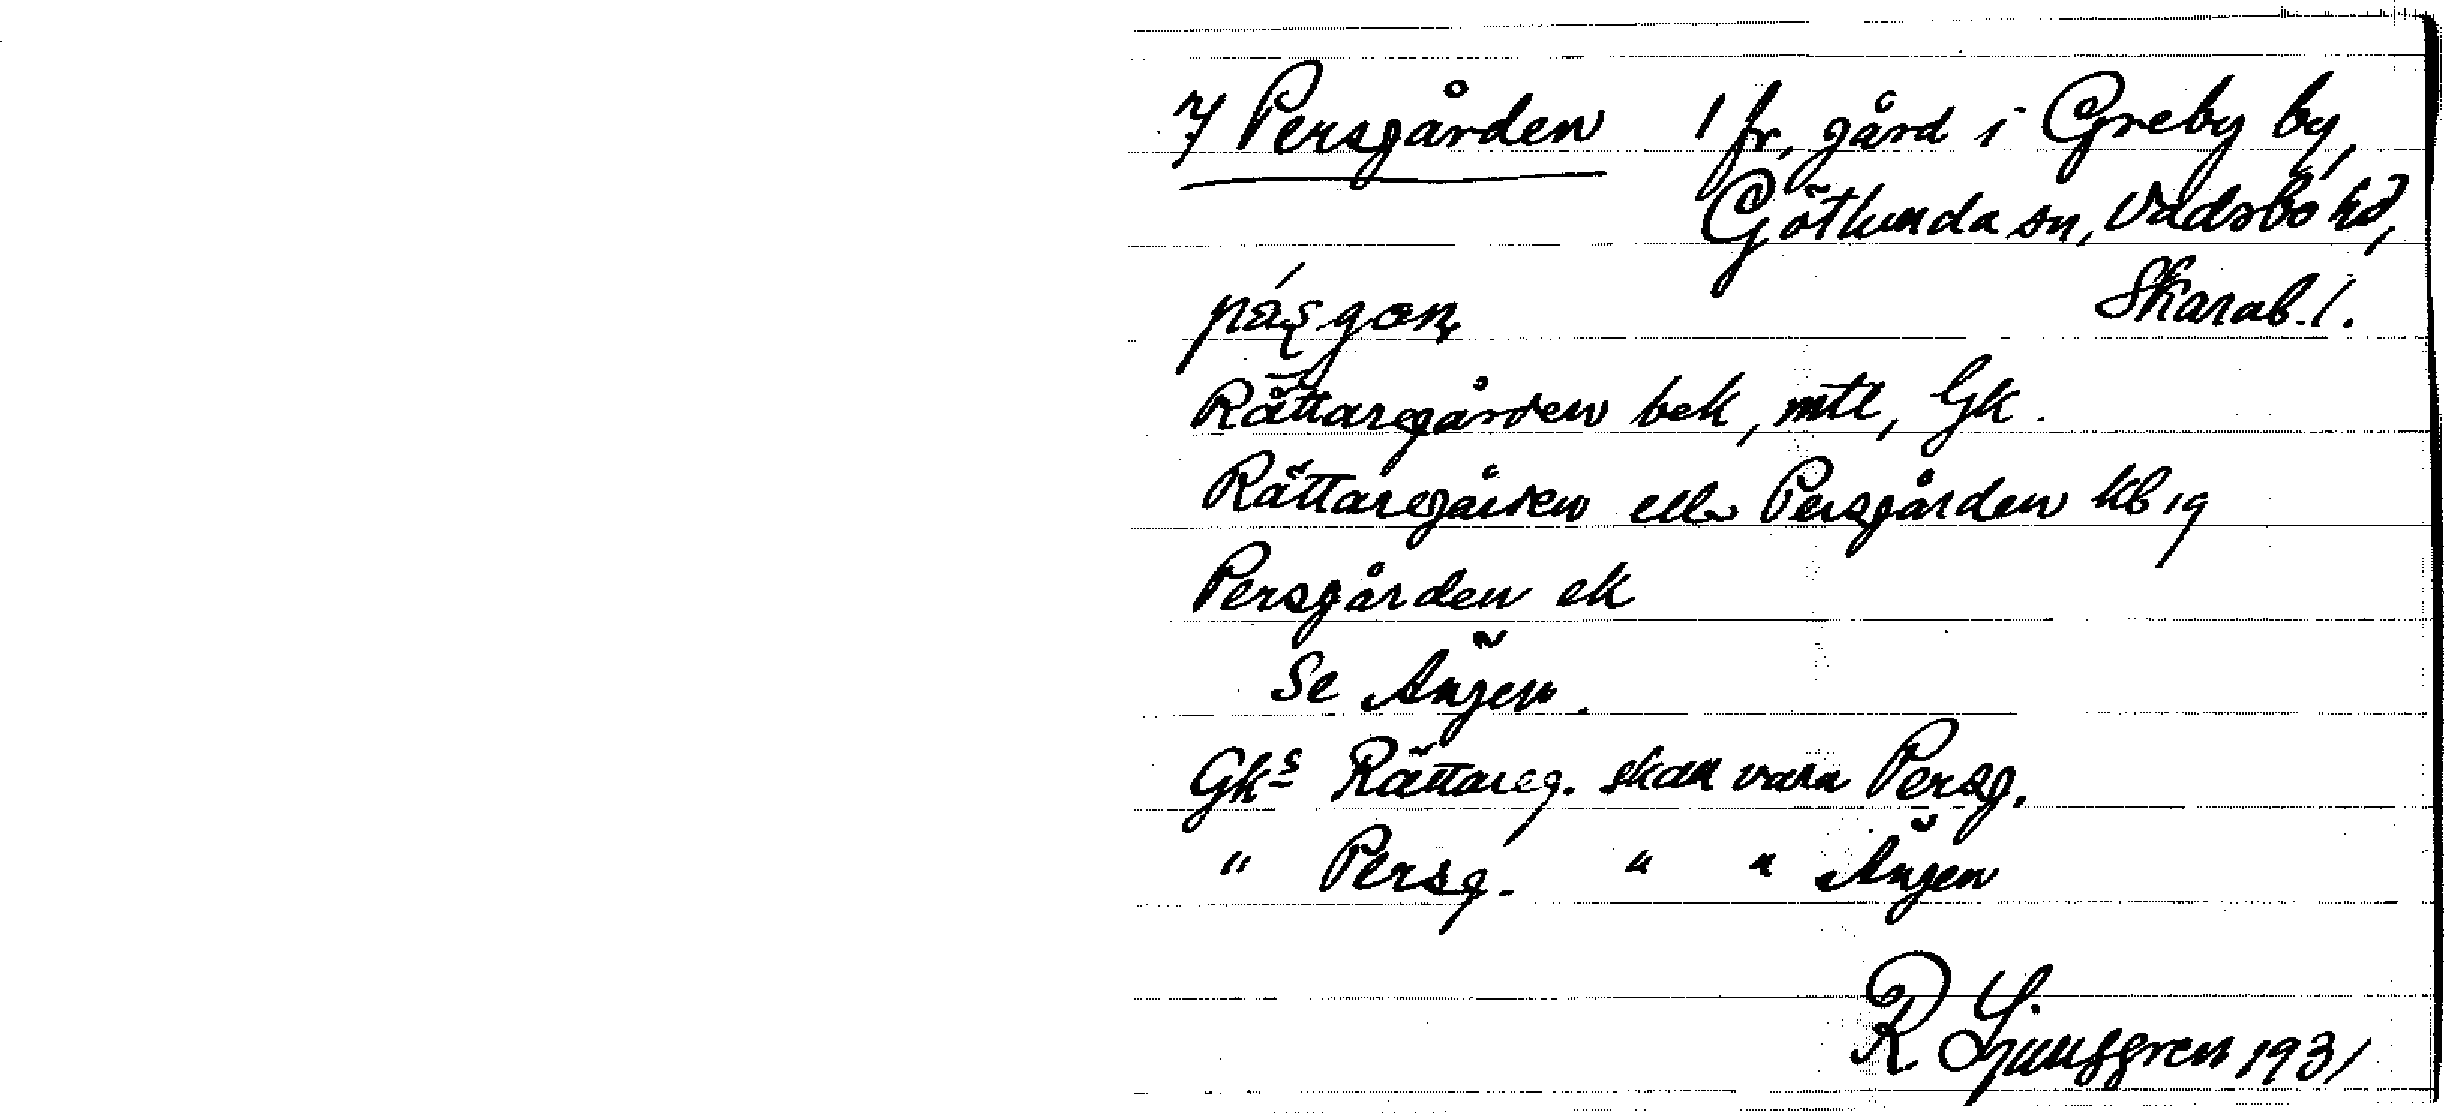 7 Persgården 1 fr. gård i Greby by,
Götlunda sn, Vadsbo hd,
Skarab. l.
Rättaregården bek, mtl, Gk.
Rättaregården eller Persgården kb 19
Persgården ek
Se Ängen.
Gks Rättareg. skall vara Persg.
" Persg. " " Ängen
R Ljunggren 1931